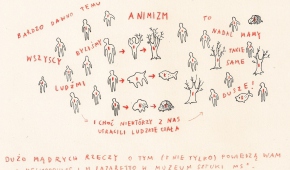 BARDZO DAWNO TEMU
ANIMIZM
WSZYSCY
BYLIŚMY
LUDŹMI
TU
NADAL MAMY
TAKIE
SAME
DUSZE!
I CHOĆ NIEKTÓRZY Z NAS
UTRACILI LUDZKIE CIAŁA
DUŻO MĄDRYCH RZECZY O TYM (I NIE TYLKO) POWIEDZĄ WAM
W MUZEUM SZTUKI MS²